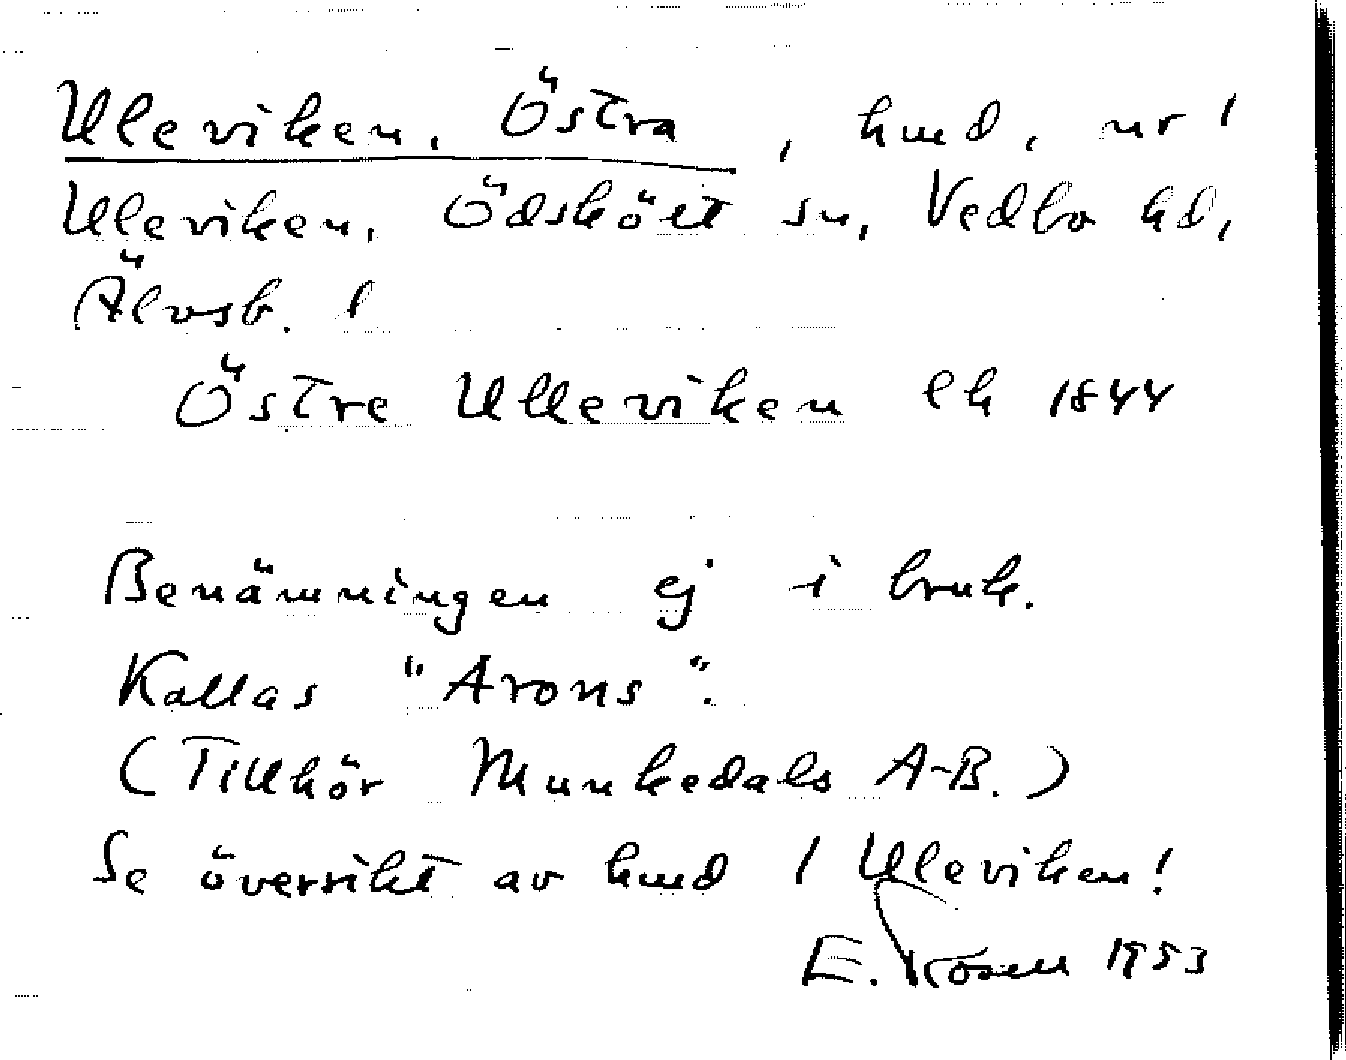 Uleviken, Östra, hmd, nr 1
Uleviken, Ödskölt sn, Vedbo hd,
Älvsb. l
Östre Ulleviken ek 1844
Benämningen ej i bruk.
Kallas "Arons".
(Tillhör Munkedals A-B.)
Se översikt av hmd 1 Uleviken!
E. Rosell 1953